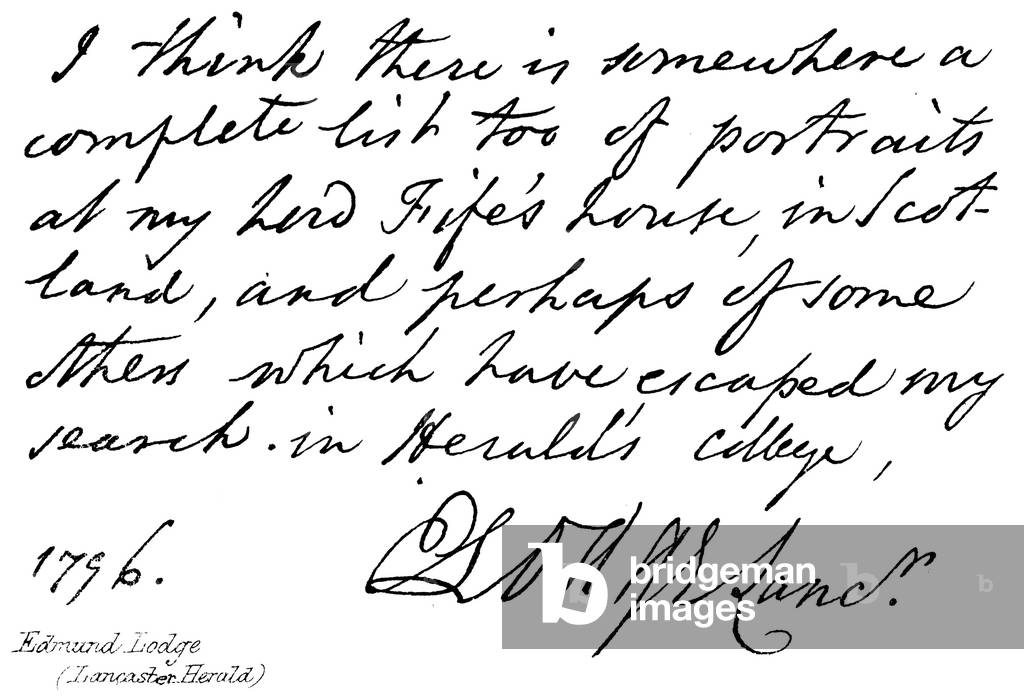 I think there is somewhere a
complete list too of portraits
at my Lord Fife's house, in Scot-
land, and perhaps of some
others which have escaped my
search . in Herald's college,
1796.
Lanc.r
bridgeman
images
b
Edmund Lodge
(Lancaster Herald)